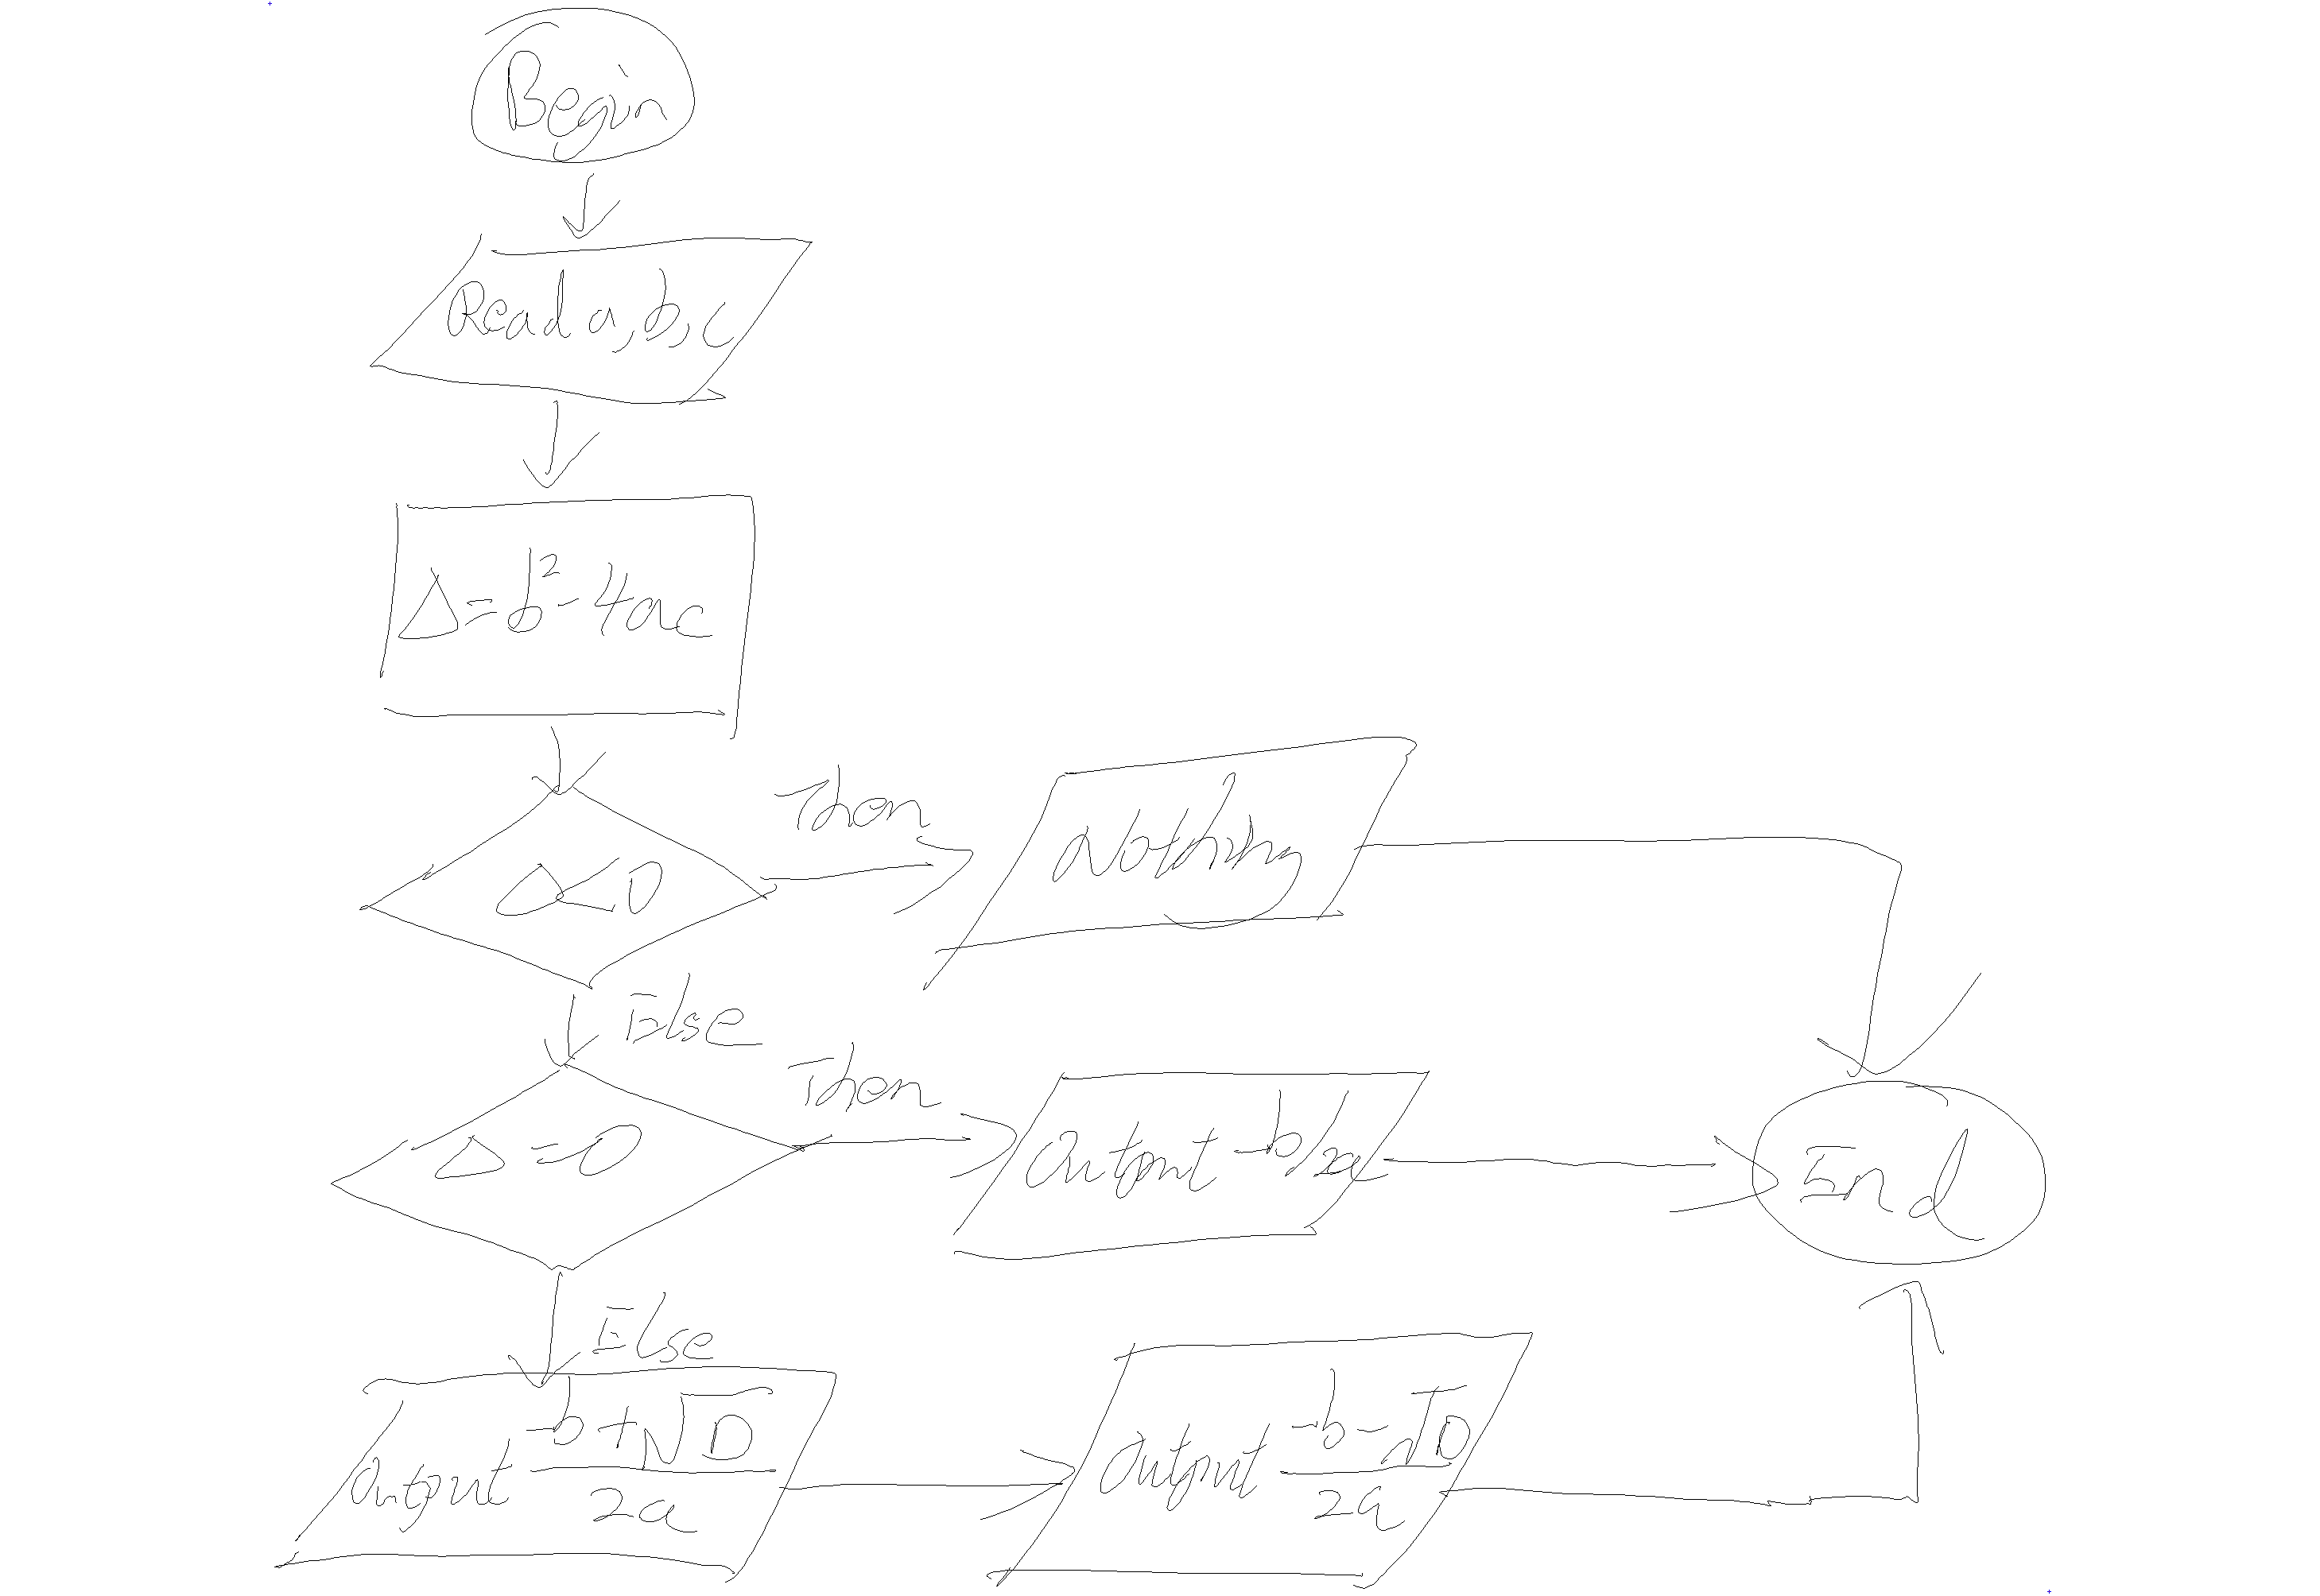 Begin
Read a, b, c
Δ = b² - 4ac
Δ<0
Then
Nothing
Else
Δ = 0
Then
Output -b/2a
End
Else
Output (-b + √D)/2a
Output (-b - √D)/2a